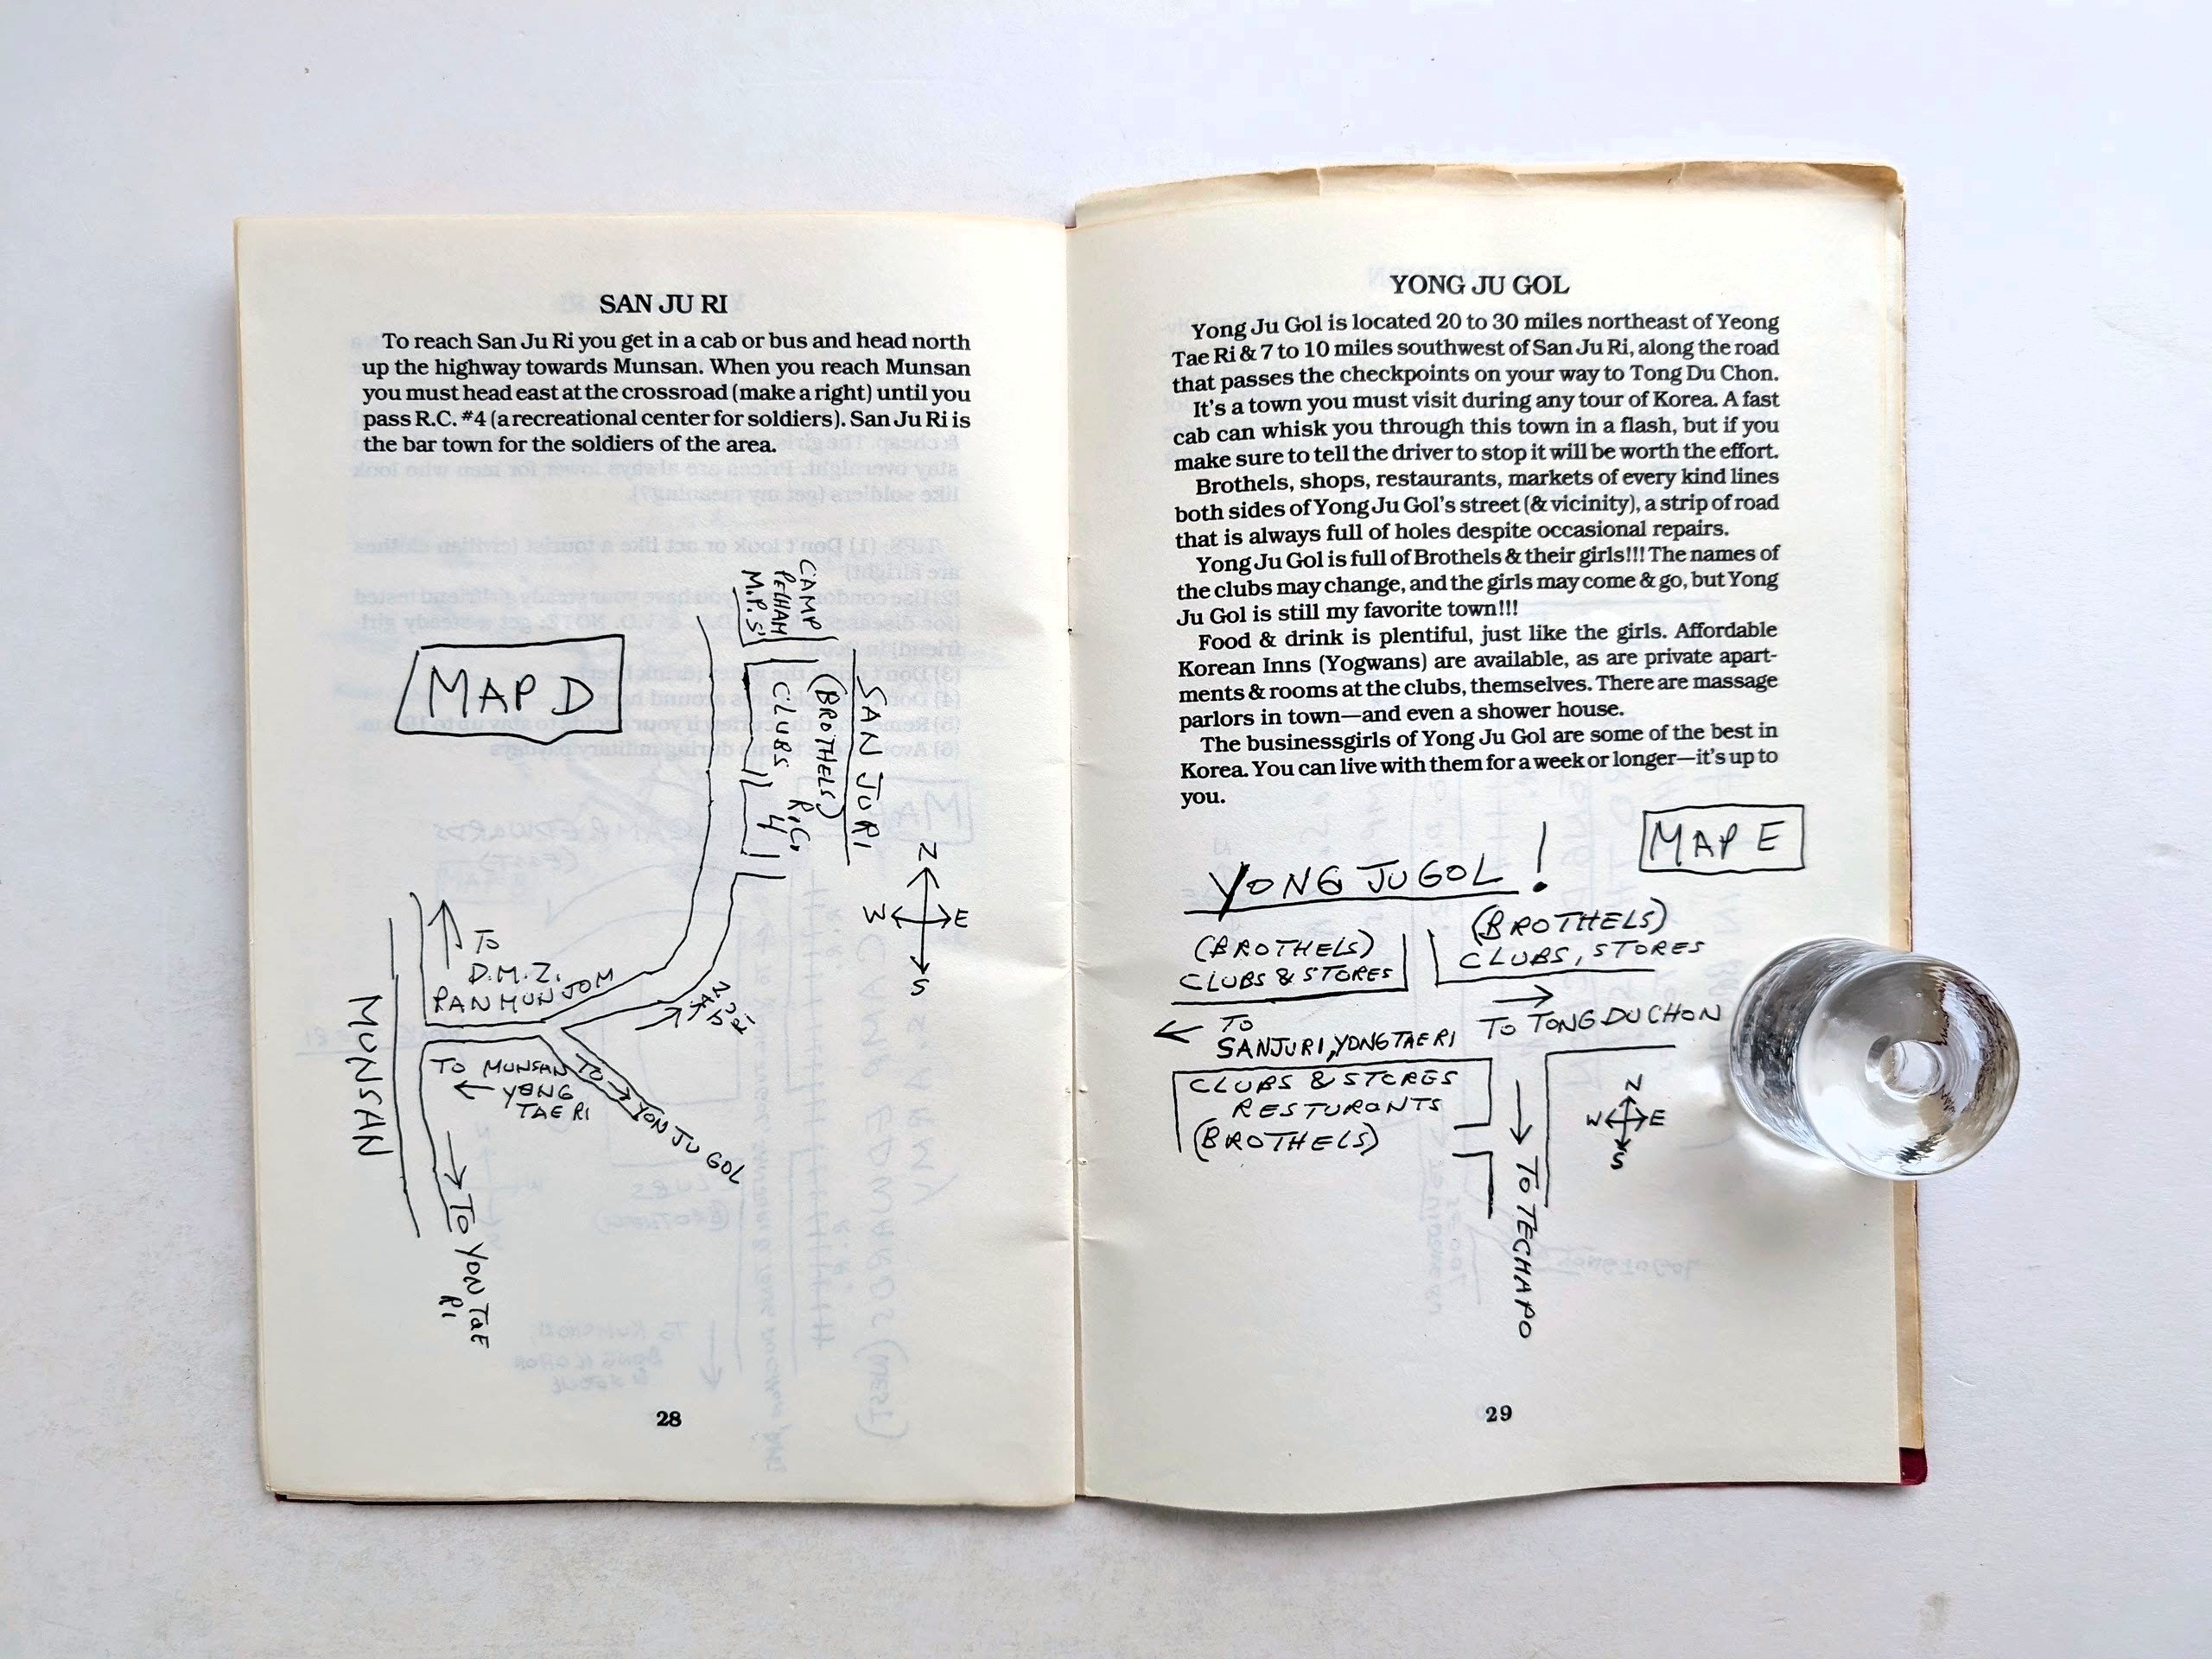 SAN JU RI
To reach San Ju Ri you get in a cab or bus and head north
up the highway towards Munsan. When you reach Munsan
you must head east at the crossroad (make a right) until you
pass R.C. #4 (a recreational center for soldiers). San Ju Ri is
the bar town for the soldiers of the area.
MAP D
CAMP
PELHAM
M.P.S'
SAN JU RI
(BROTHELS)
CLUBS
R.C.
4
N
W E
S
TO
D.M.Z.
PANMUNJOM
SAN
JU
RI
MUNSAN
TO MUNSAN
YONG
TAE RI
TO
YON JU GOL
TO YON TAE
RI
28
YONG JU GOL
Yong Ju Gol is located 20 to 30 miles northeast of Yeong
Tae Ri & 7 to 10 miles southwest of San Ju Ri, along the road
that passes the checkpoints on your way to Tong Du Chon.
It's a town you must visit during any tour of Korea. A fast
cab can whisk you through this town in a flash, but if you
make sure to tell the driver to stop it will be worth the effort.
Brothels, shops, restaurants, markets of every kind lines
both sides of Yong Ju Gol's street (& vicinity), a strip of road
that is always full of holes despite occasional repairs.
Yong Ju Gol is full of Brothels & their girls!!! The names of
the clubs may change, and the girls may come & go, but Yong
Ju Gol is still my favorite town!!!
Food & drink is plentiful, just like the girls. Affordable
Korean Inns (Yogwans) are available, as are private apart-
ments & rooms at the clubs, themselves. There are massage
parlors in town—and even a shower house.
The businessgirls of Yong Ju Gol are some of the best in
Korea. You can live with them for a week or longer—it's up to
you.
MAP E
YONG JU GOL!
(BROTHELS)
CLUBS & STORES
(BROTHELS)
CLUBS, STORES
TO
SANJURI, YONGTAERI
TO TONG DU CHON
CLUBS & STORES
RESTURANTS
(BROTHELS)
N
W E
S
TO TECHAPO
29